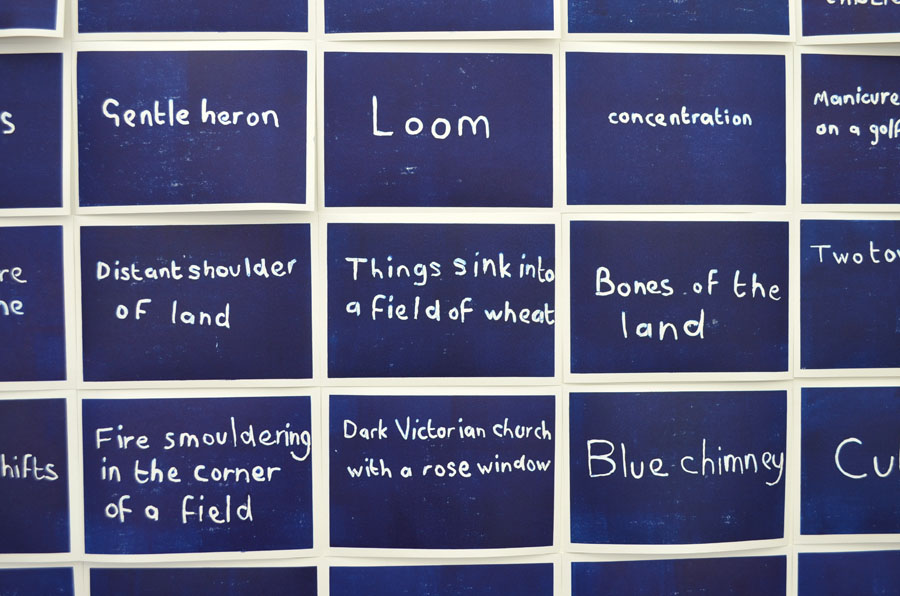 Gentle heron
Loom
concentration
Manicure
on a golf
Distant shoulder
of land
Things sink into
a field of wheat
Bones of the
land
Fire smouldering
in the corner
of a field
Dark Victorian church
with a rose window
Blue chimney